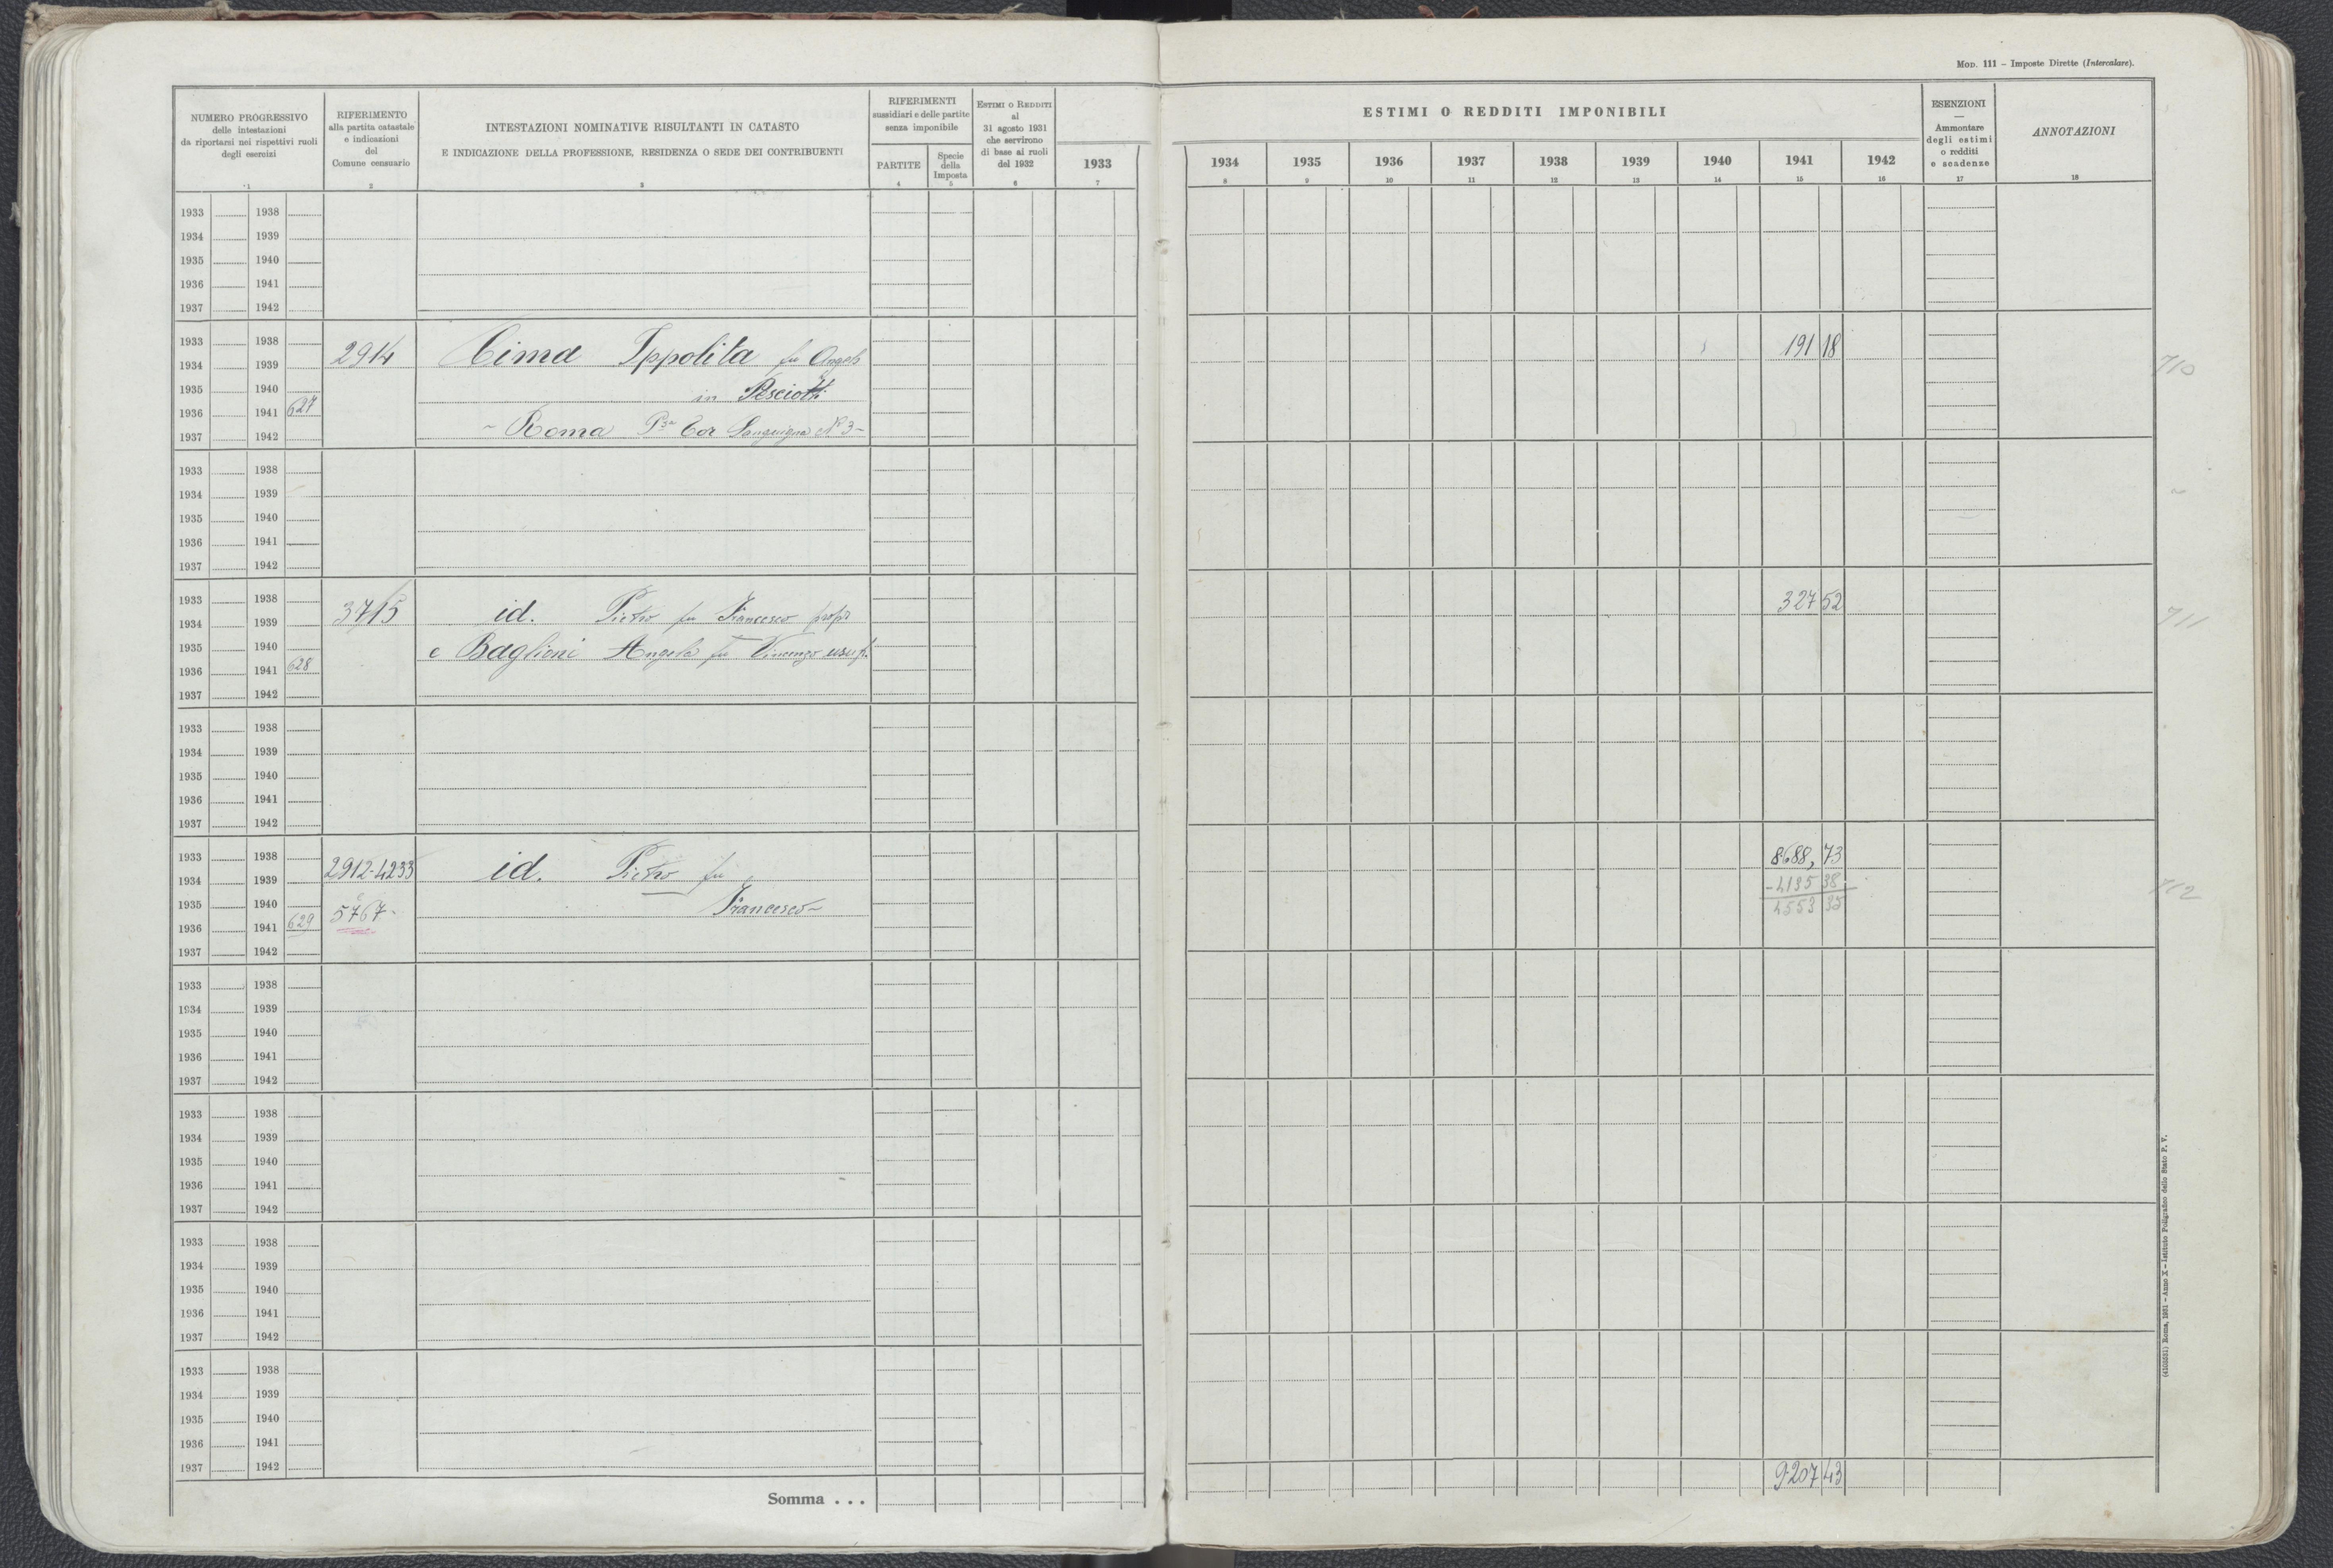 MOD. 111 – Imposte Dirette (Intercalare).
NUMERO PROGRESSIVO
delle intestazioni
da riportarsi nei rispettivi ruoli
degli esercizi
1
RIFERIMENTO
alla partita catastale
e indicazioni
del
Comune censuario
2
INTESTAZIONI NOMINATIVE RISULTANTI IN CATASTO
E INDICAZIONE DELLA PROFESSIONE, RESIDENZA O SEDE DEI CONTRIBUENTI
3
RIFERIMENTI
sussidiari e delle partite
senza imponibile
PARTITE
4
Specie
della
Imposta
5
ESTIMI O REDDITI
al
31 agosto 1931
che servirono
di base ai ruoli
del 1932
6
ESTIMI O REDDITI IMPONIBILI
1933 1934 1935 1936 1937 1938 1939 1940 1941 1942
7 8 9 10 11 12 13 14 15 16
ESENZIONI
—
Ammontare
degli estimi
o redditi
e scadenze
17
ANNOTAZIONI
18
1933 1938
1934 1939
1935 1940
1936 1941
1937 1942
1933 1938
1934 1939 2914 Cima Ippolita fu Angelo 191 18 710
1935 1940 in Pesciotti
1936 1941 627
1937 1942 – Roma Pza Tor Sanguigna No 3 –
1933 1938
1934 1939
1935 1940
1936 1941
1937 1942
1933 1938 327 52
1934 1939 3715 id. Pietro fu Francesco propr 711
1935 1940 e Baglioni Angela fu Vincenzo usuf.
1936 1941 628
1937 1942
1933 1938
1934 1939
1935 1940
1936 1941
1937 1942
1933 1938 8688,73
1934 1939 2912-4233 id. Pietro fu –4135 38 712
1935 1940 5767 Francesco – 4553 35
1936 1941 629
1937 1942
1933 1938
1934 1939
1935 1940
1936 1941
1937 1942
1933 1938
1934 1939
1935 1940
1936 1941
1937 1942
1933 1938
1934 1939
1935 1940
1936 1941
1937 1942
1933 1938
1934 1939
1935 1940
1936 1941
1937 1942
Somma . . . 9207 43
(4103551) Roma, 1931 – Anno X – Istituto Poligrafico dello Stato P. V.